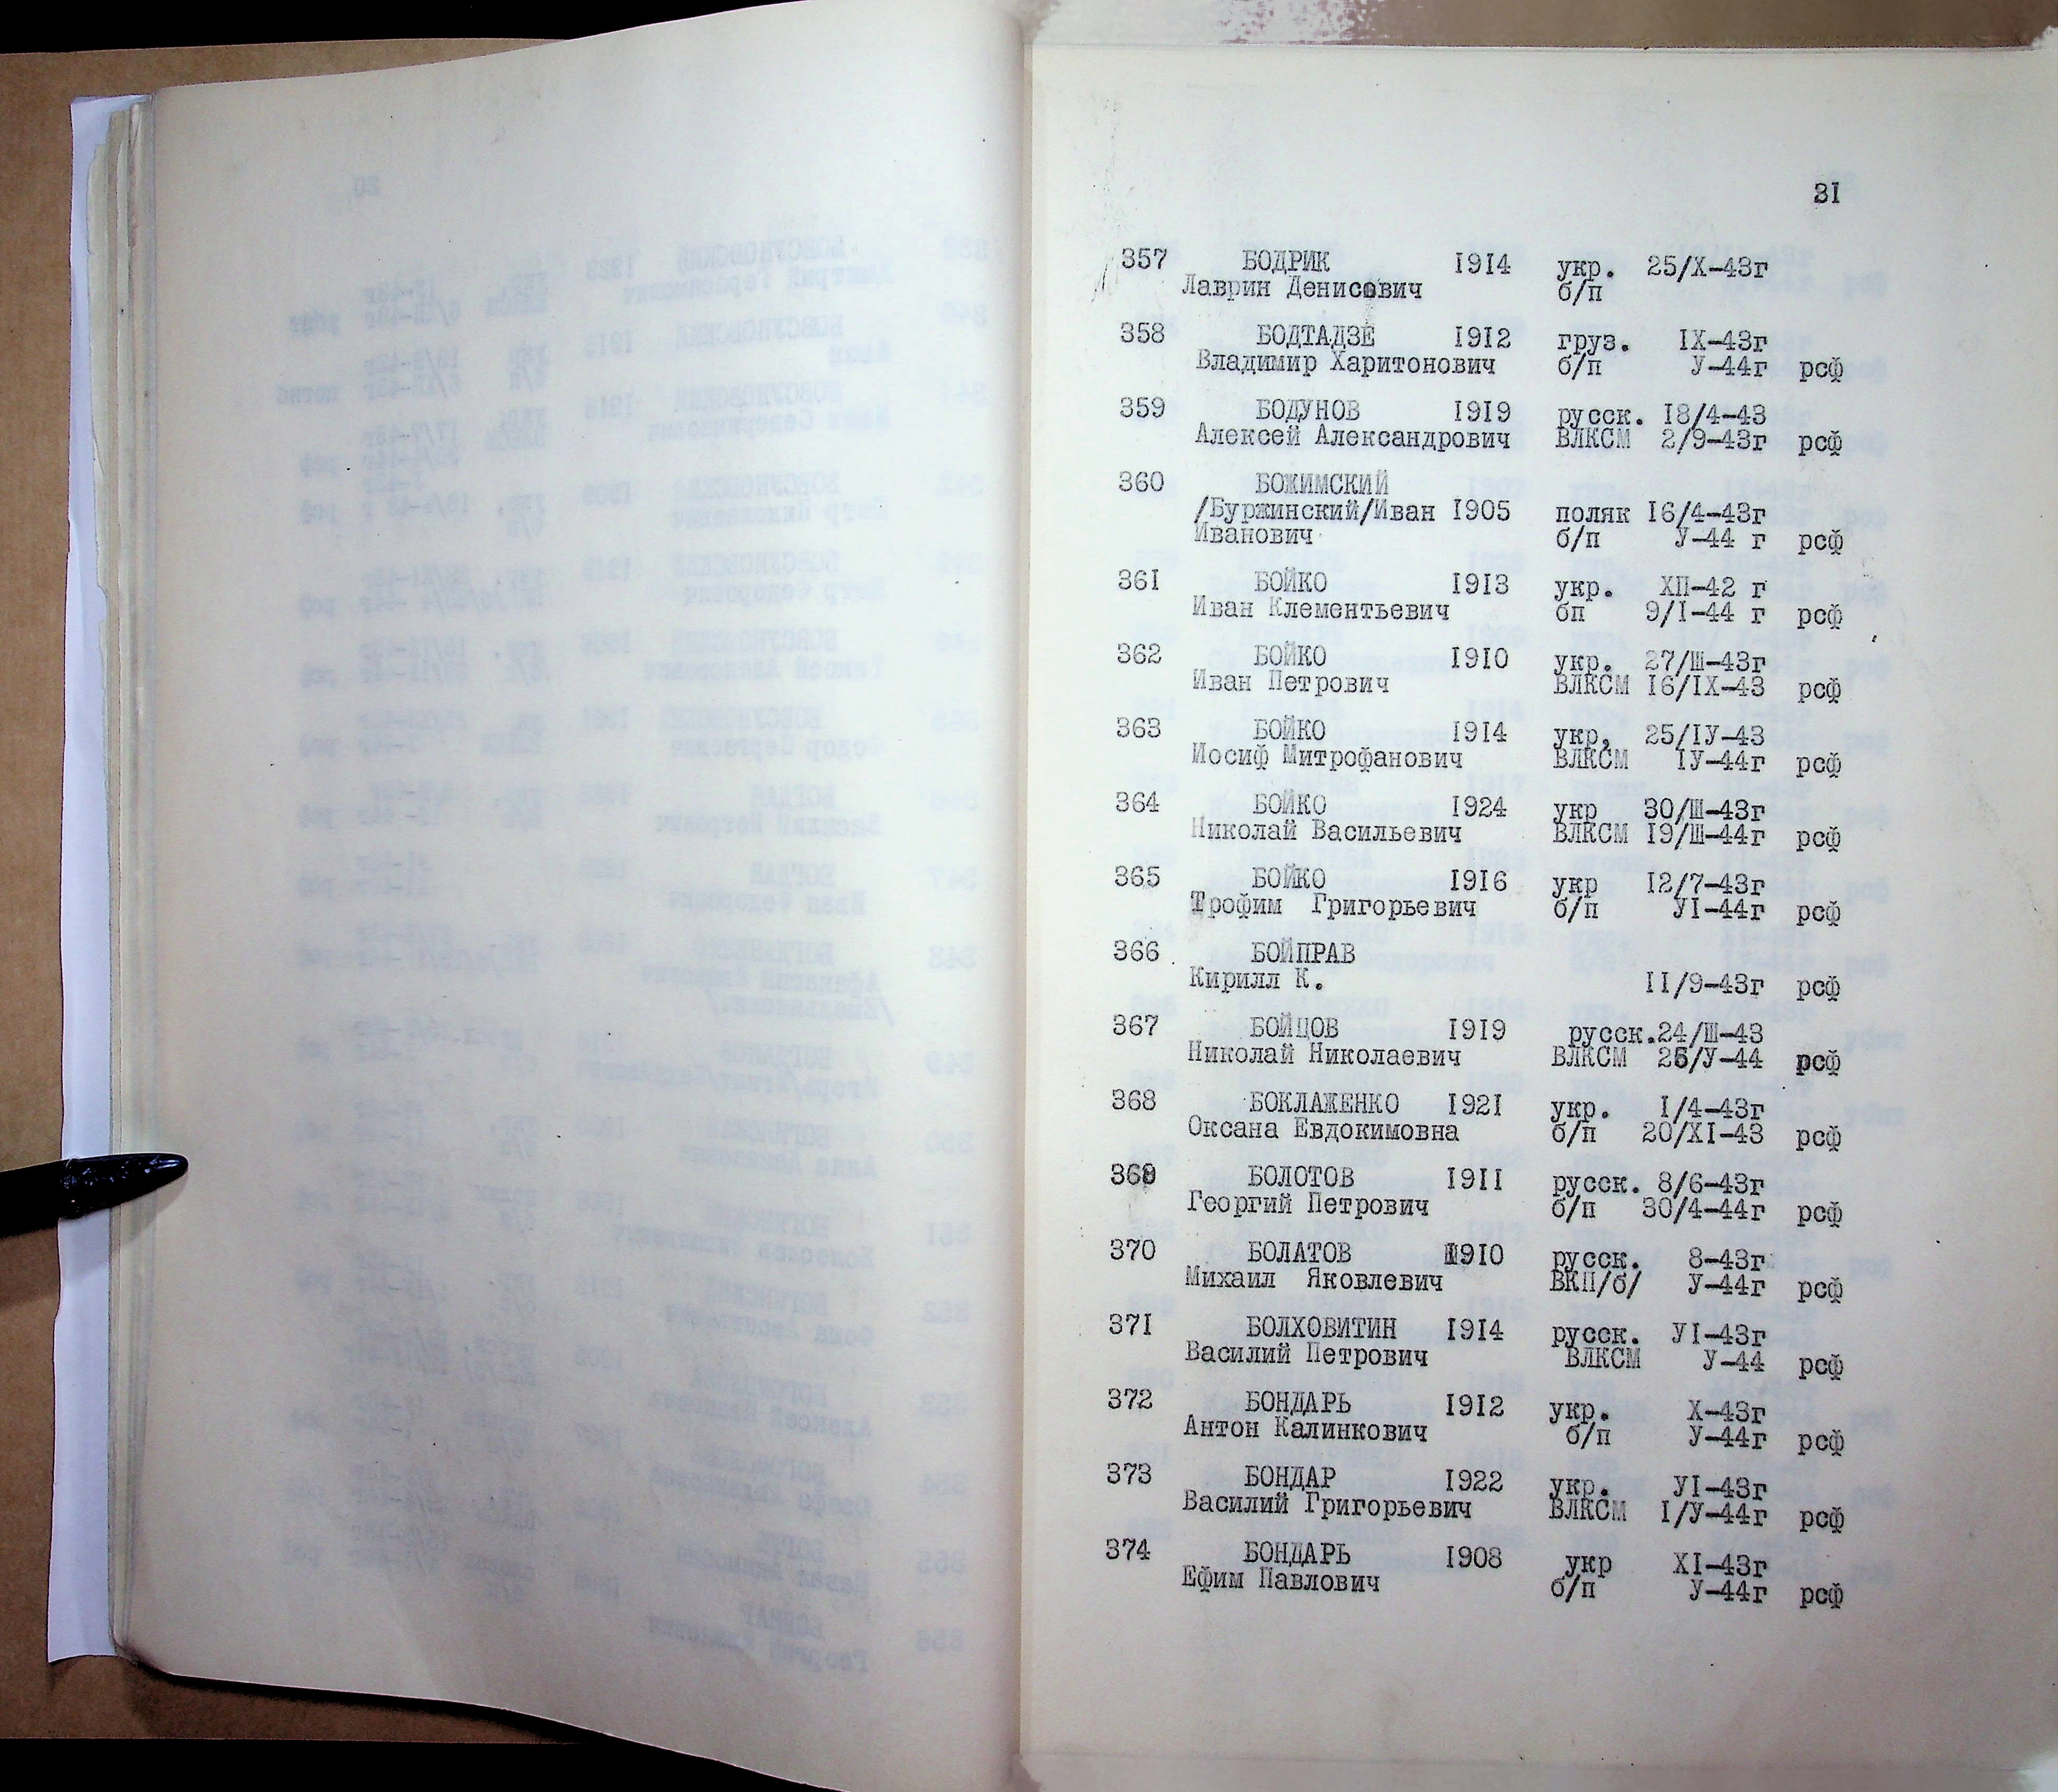 31
357 БОДРИК 1914 укр. 25/X-43г
Лаврин Денисович б/п
358 БОДТАДЗЕ 1912 груз. IX-43г
Владимир Харитонович б/п У-44г рсф
359 БОДУНОВ 1919 русск. 18/4-43
Алексей Александрович ВЛКСМ 2/9-43г рсф
360 БОЖИМСКИЙ
/Буржинский/Иван 1905 поляк 16/4-43г
Иванович б/п У-44 г рсф
361 БОЙКО 1913 укр. ХП-42 г
Иван Клементьевич бп 9/I-44 г рсф
362 БОЙКО 1910 укр. 27/Ш-43г
Иван Петрович ВЛКСМ 16/IX-43 рсф
363 БОЙКО 1914 укр, 25/IУ-43
Иосиф Митрофанович ВЛКСМ IУ-44г рсф
364 БОЙКО 1924 укр 30/Ш-43г
Николай Васильевич ВЛКСМ 19/Ш-44г рсф
365 БОЙКО 1916 укр 12/7-43г
Трофим Григорьевич б/п УI-44г рсф
366 БОЙПРАВ
Кирилл К. 11/9-43г рсф
367 БОЙЦОВ 1919 русск.24/Ш-43
Николай Николаевич ВЛКСМ 25/У-44 рсф
368 БОКЛАЖЕНКО 1921 укр. I/4-43г
Оксана Евдокимовна б/п 20/XI-43 рсф
369 БОЛОТОВ 1911 русск. 8/6-43г
Георгий Петрович б/п 30/4-44г рсф
370 БОЛАТОВ 1910 русск. 8-43г
Михаил Яковлевич ВКП/б/ У-44г рсф
371 БОЛХОВИТИН 1914 русск. УI-43г
Василий Петрович ВЛКСМ У-44 рсф
372 БОНДАРЬ 1912 укр. X-43г
Антон Калинкович б/п У-44г рсф
373 БОНДАР 1922 укр. УI-43г
Василий Григорьевич ВЛКСМ I/У-44г рсф
374 БОНДАРЬ 1908 укр XI-43г
Ефим Павлович б/п У-44г рсф